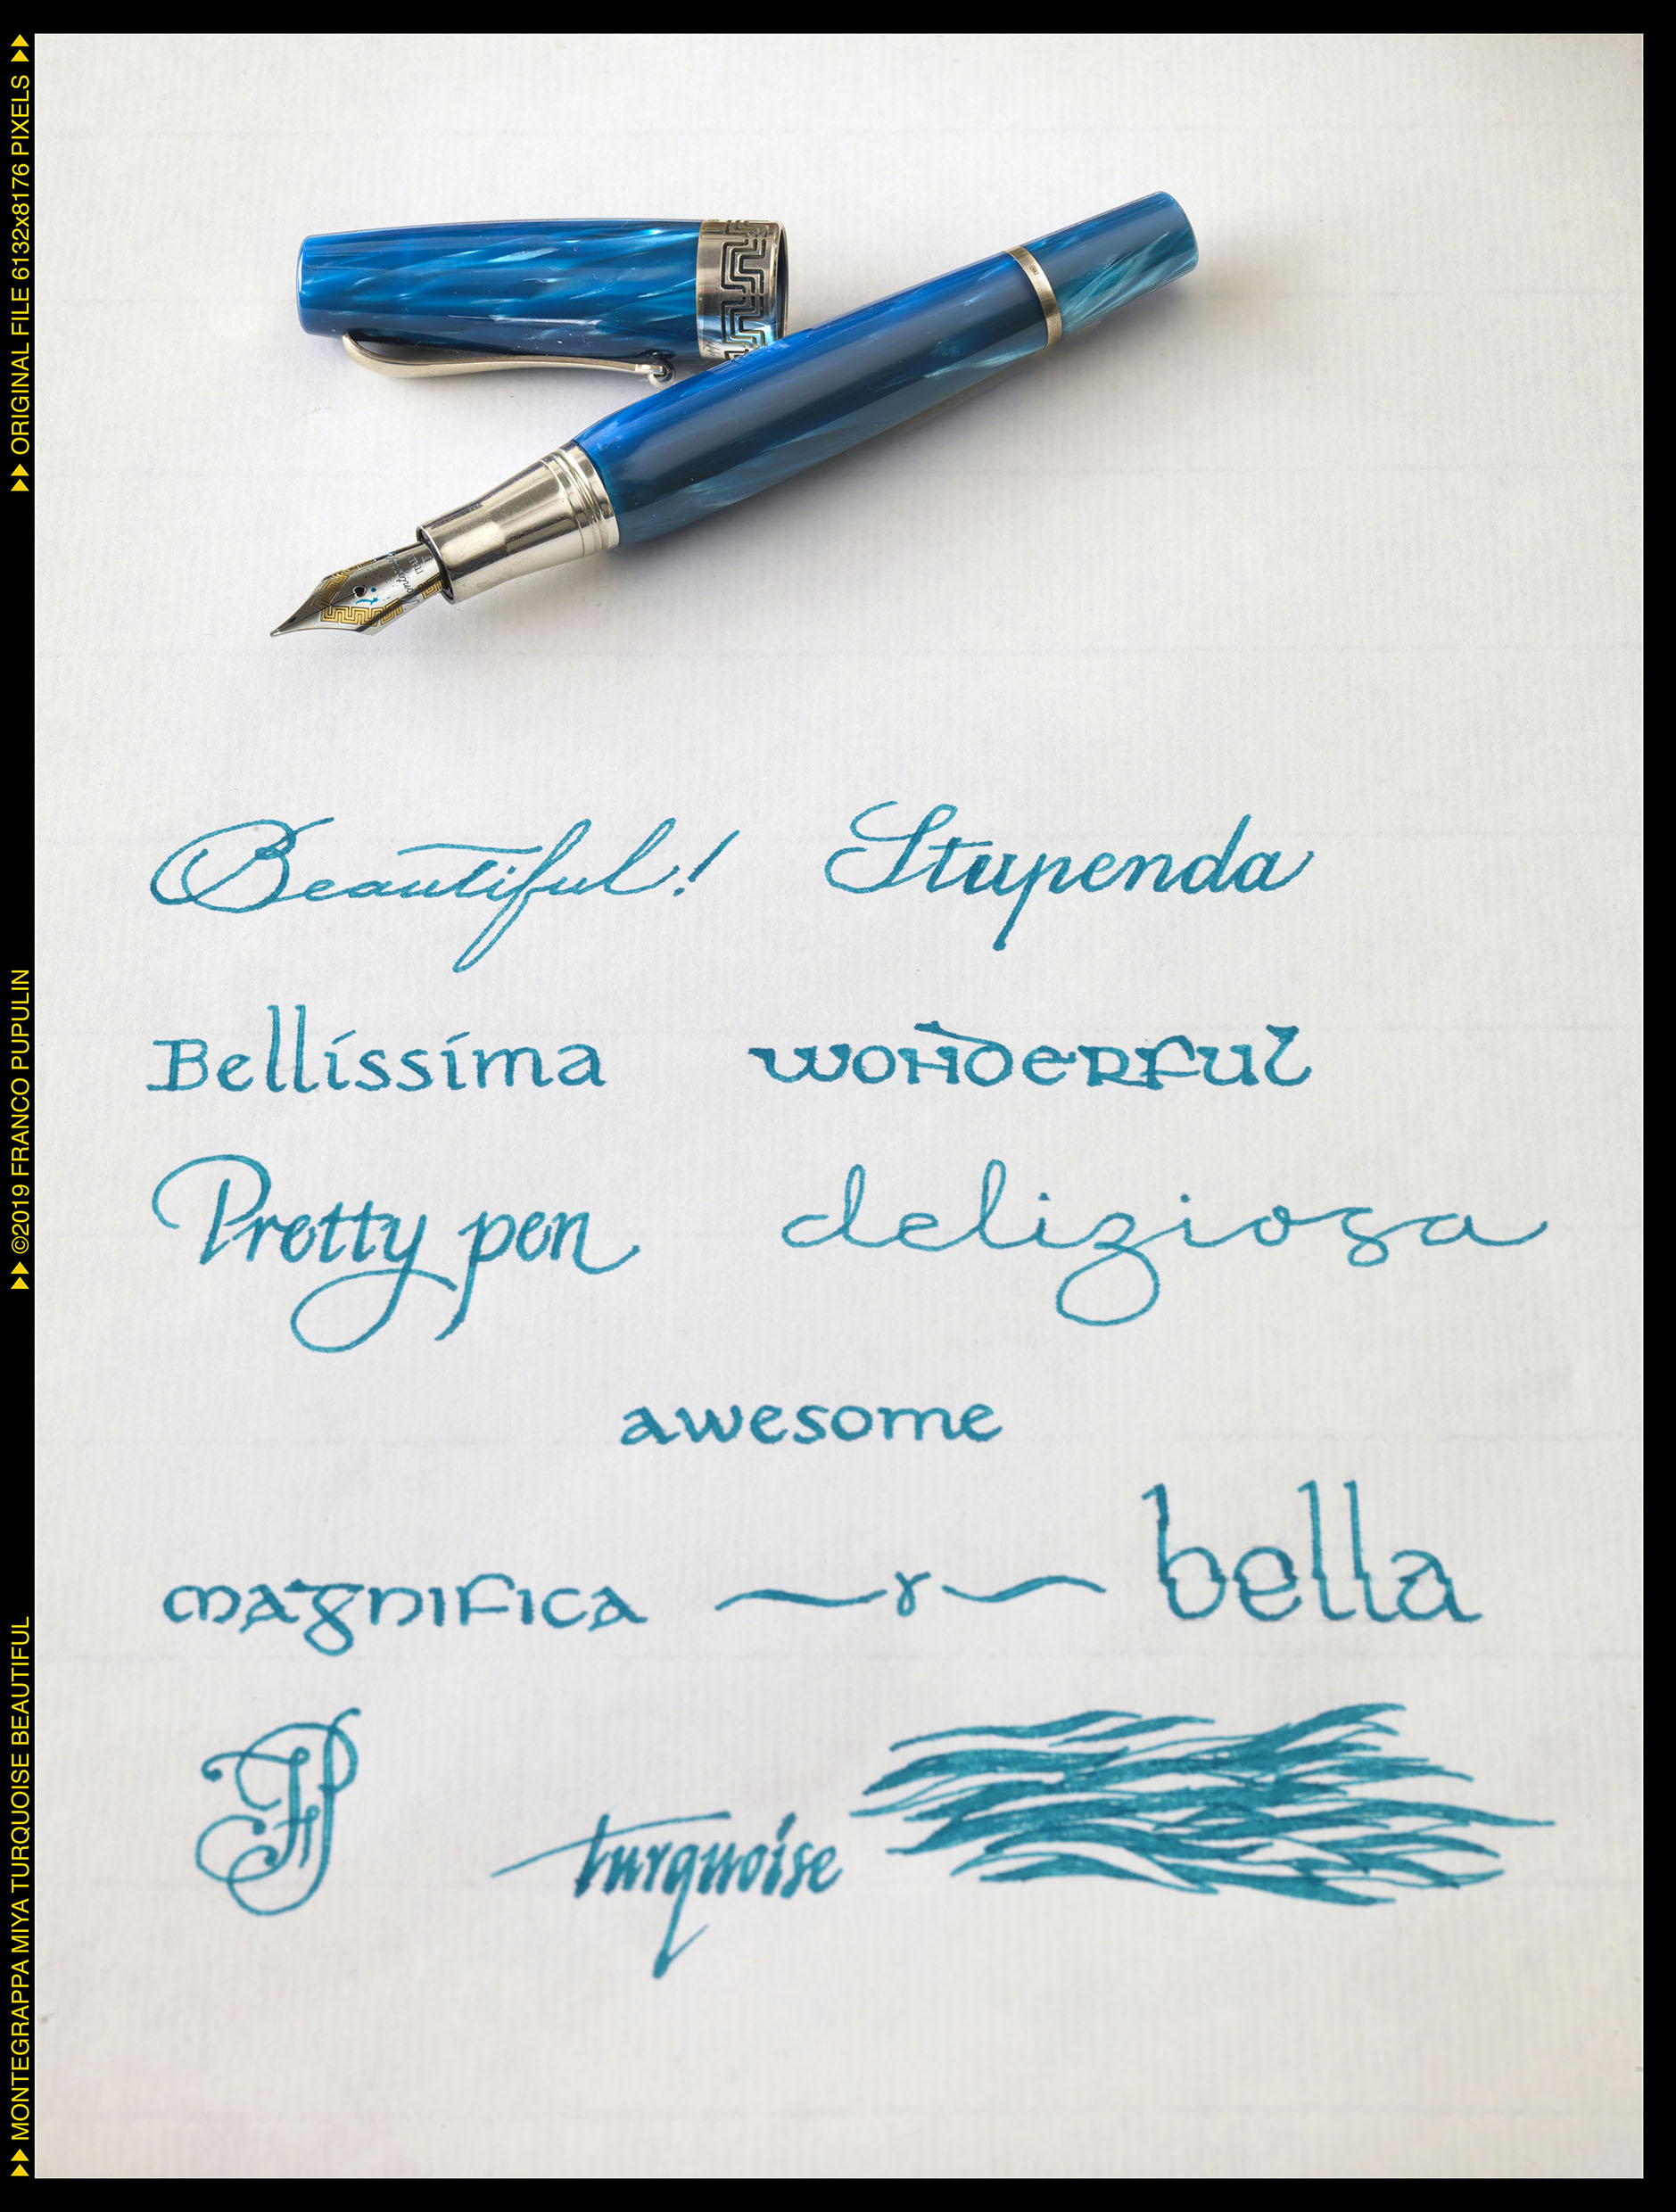 ▶▶ ORIGINAL FILE 6132x8176 PIXELS ▶▶
▶▶ ©2019 FRANCO PUPULIN
▶▶ MONTEGRAPPA MIYA TURQUOISE BEAUTIFUL
Beautiful! Stupenda
Bellissima wonderful
Pretty pen deliziosa
awesome
magnifica bella
FP
turquoise